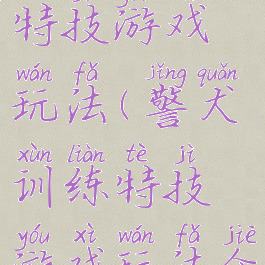 特技游戏
wán fǎ jǐng quǎn
玩法(警犬
xùn liàn tè jì
训练特技
yóu xì wán fǎ jiè
游戏玩法介